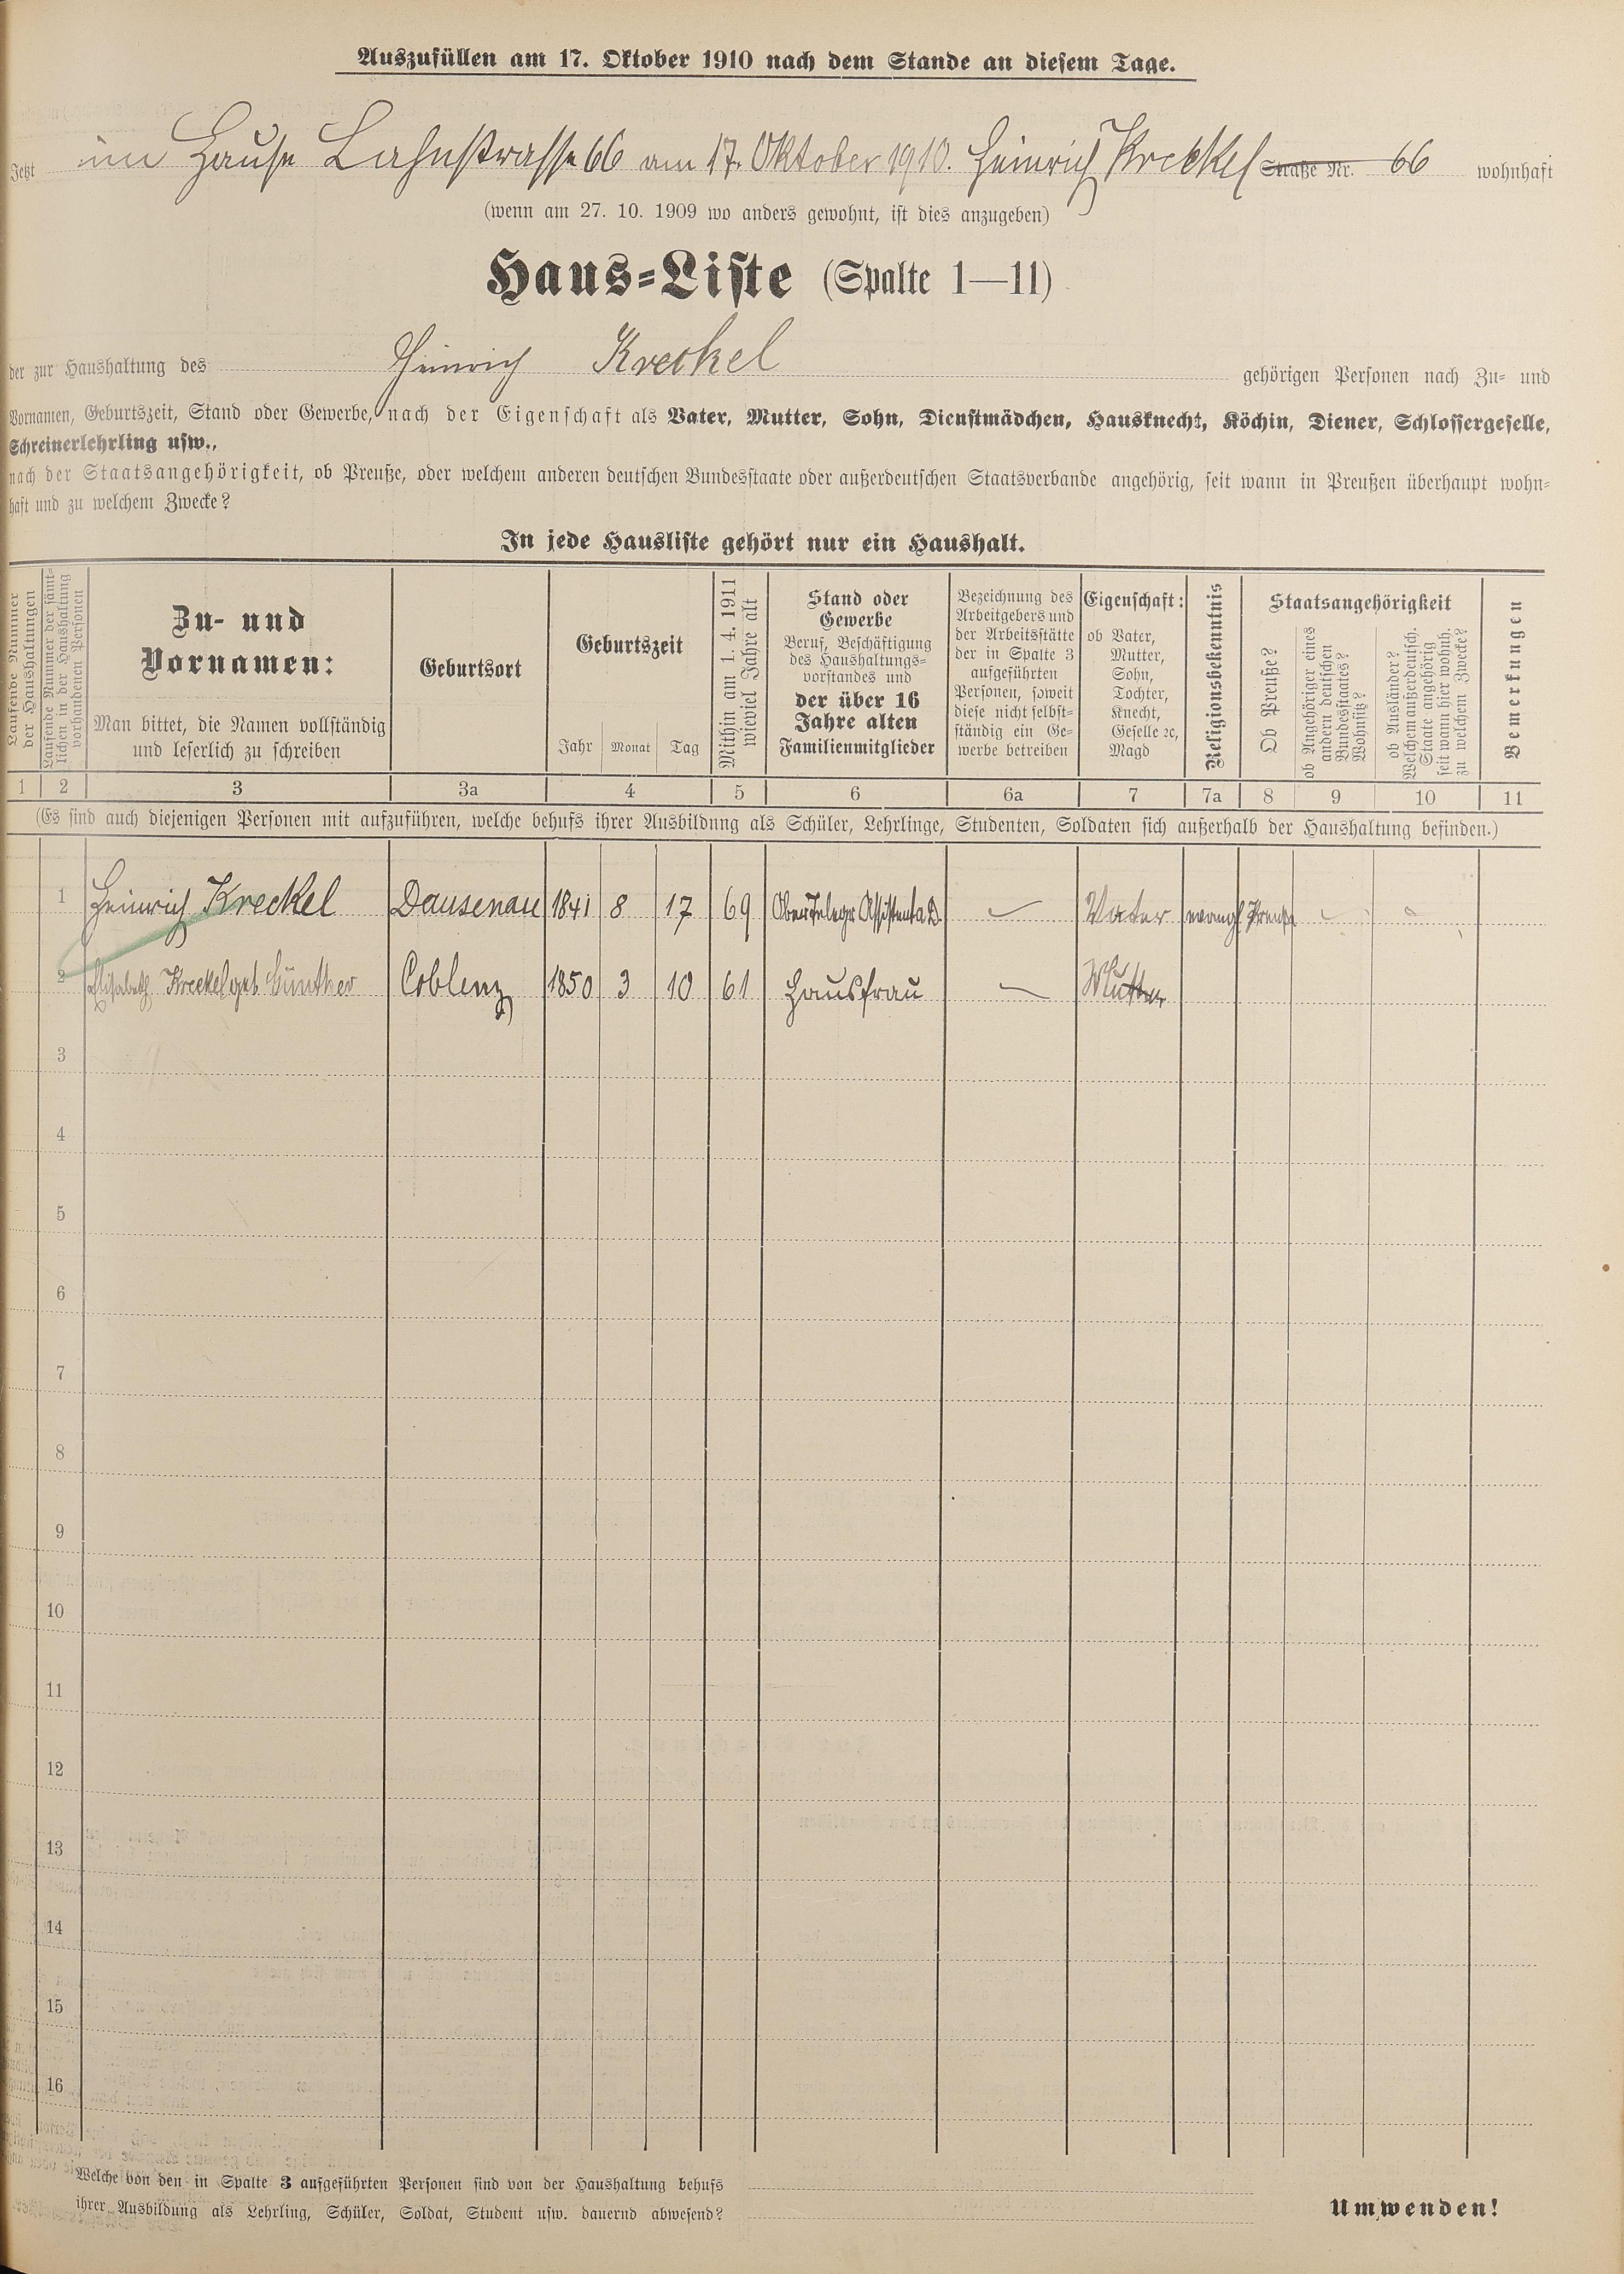 Auszufüllen am 17. Oktober 1910 nach dem Stande an diesem Tage.
Jetzt im Hause Lahnstrasse 66 am 17. Oktober 1910. Heinrich Kreckel Straße Nr. 66 wohnhaft
(wenn am 27. 10. 1909 wo anders gewohnt, ist dies anzugeben)
Haus-Liste (Spalte 1—11)
der zur Haushaltung des Heinrich Kreckel gehörigen Personen nach Zu- und
Vornamen, Geburtszeit, Stand oder Gewerbe, nach der Eigenschaft als Vater, Mutter, Sohn, Dienstmädchen, Hausknecht, Köchin, Diener, Schlossergeselle,
Schreinerlehrling usw.,
nach der Staatsangehörigkeit, ob Preuße, oder welchem anderen deutschen Bundesstaate oder außerdeutschen Staatsverbande angehörig, seit wann in Preußen überhaupt wohn-
haft und zu welchem Zwecke?
In jede Hausliste gehört nur ein Haushalt.
Laufende Nummer
der Haushaltungen
Laufende Nummer der sämt-
lichen in der Haushaltung
vorhandenen Personen
Zu- und
Vornamen:
Man bittet, die Namen vollständig
und leserlich zu schreiben
Geburtsort
Geburtszeit
Jahr Monat Tag
Mithin am 1. 4. 1911
wieviel Jahre alt
Stand oder
Gewerbe
Beruf, Beschäftigung
des Haushaltungs-
vorstandes und
der über 16
Jahre alten
Familienmitglieder
Bezeichnung des
Arbeitgebers und
der Arbeitsstätte
der in Spalte 3
aufgeführten
Personen, soweit
diese nicht selbst-
ständig ein Ge-
werbe betreiben
Eigenschaft:
ob Vater,
Mutter,
Sohn,
Tochter,
Knecht,
Geselle ꝛc,
Magd
Religionsbekenntnis
Staatsangehörigkeit
Ob Preuße?
ob Angehöriger eines
andern deutschen
Bundesstaates?
Wohnsitz?
ob Ausländer?
Welchem außerdeutsch.
Staate angehörig
seit wann hier wohnh.
zu welchem Zwecke?
Bemerkungen
1 2 3 3a 4 5 6 6a 7 7a 8 9 10 11
(Es sind auch diejenigen Personen mit aufzuführen, welche behufs ihrer Ausbildung als Schüler, Lehrlinge, Studenten, Soldaten sich außerhalb der Haushaltung befinden.)
1 Heinrich Kreckel Dausenau 1841 8 17 69 Ober Telegr Assistent a. D. Vater evangl Preuße
2 Elisabeth Kreckel geb Günther Coblenz 1850 3 10 61 Hausfrau Mutter
3
4
5
6
7
8
9
10
11
12
13
14
15
16
Welche von den in Spalte 3 aufgeführten Personen sind von der Haushaltung behufs
ihrer Ausbildung als Lehrling, Schüler, Soldat, Student usw. dauernd abwesend?
Umwenden!